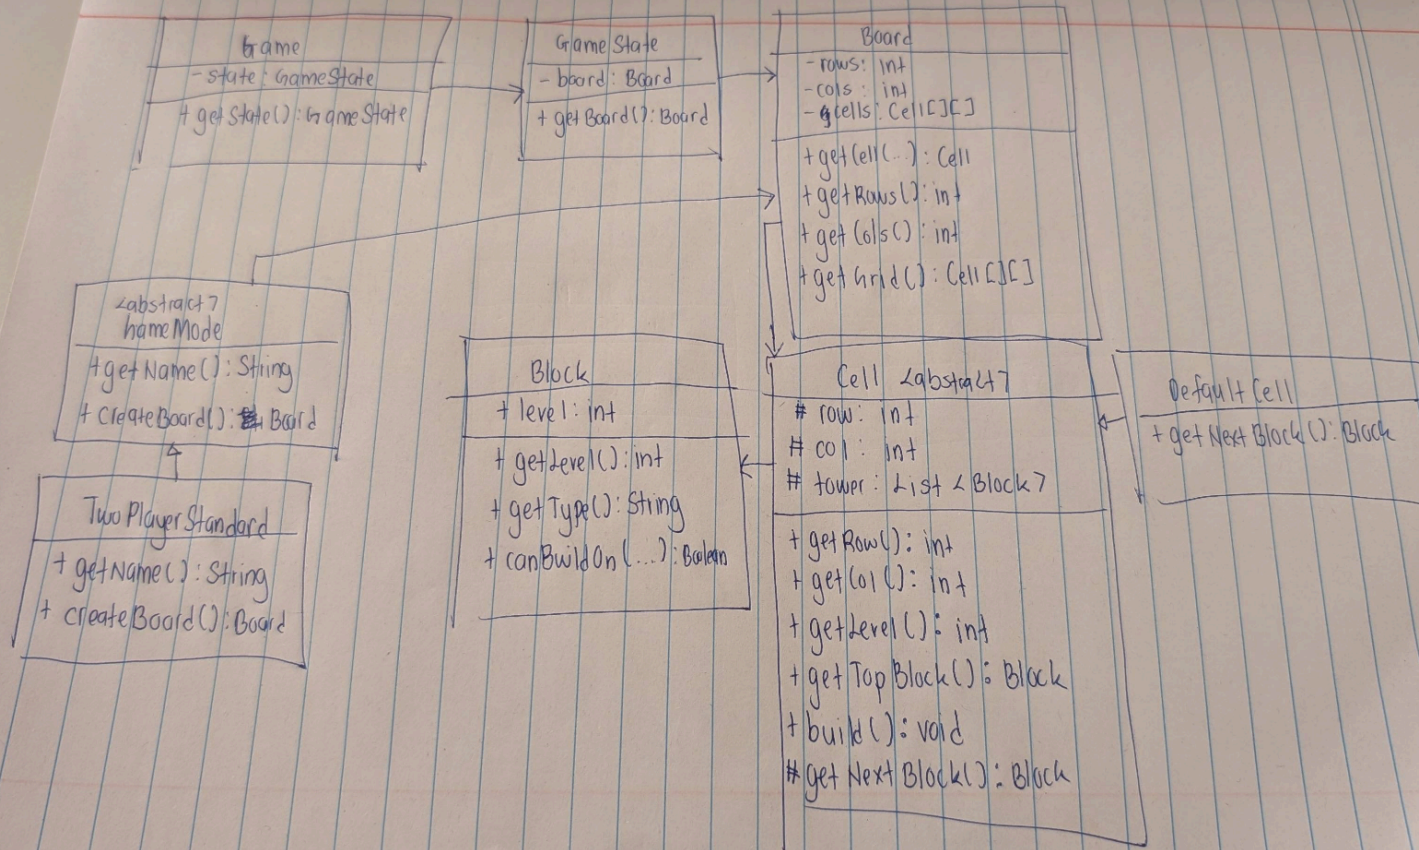 Game
- state: GameState
+ getState(): GameState
GameState
- board: Board
+ getBoard(): Board
Board
- rows: int
- cols: int
- cells: Cell[][]
+ getCell(...): Cell
+ getRows(): int
+ getCols(): int
+ getGrid(): Cell[][]
<abstract>
GameMode
+ getName(): String
+ createBoard(): Board
TwoPlayerStandard
+ getName(): String
+ createBoard(): Board
Block
+ level: int
+ getLevel(): int
+ getType(): String
+ canBuildOn(...): Boolean
Cell <abstract>
# row: int
# col: int
# tower: List <Block>
+ getRow(): int
+ getCol(): int
+ getLevel(): int
+ getTopBlock(): Block
+ build(): void
# getNextBlock(): Block
DefaultCell
+ getNextBlock(): Block